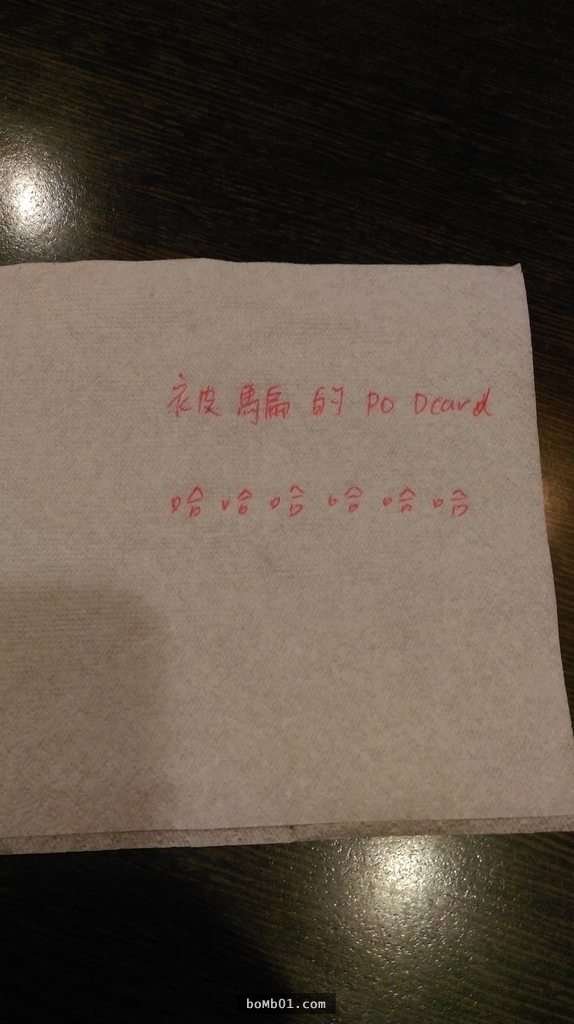 被騙的 PO Dcard
哈哈哈哈哈哈
boMb01.com